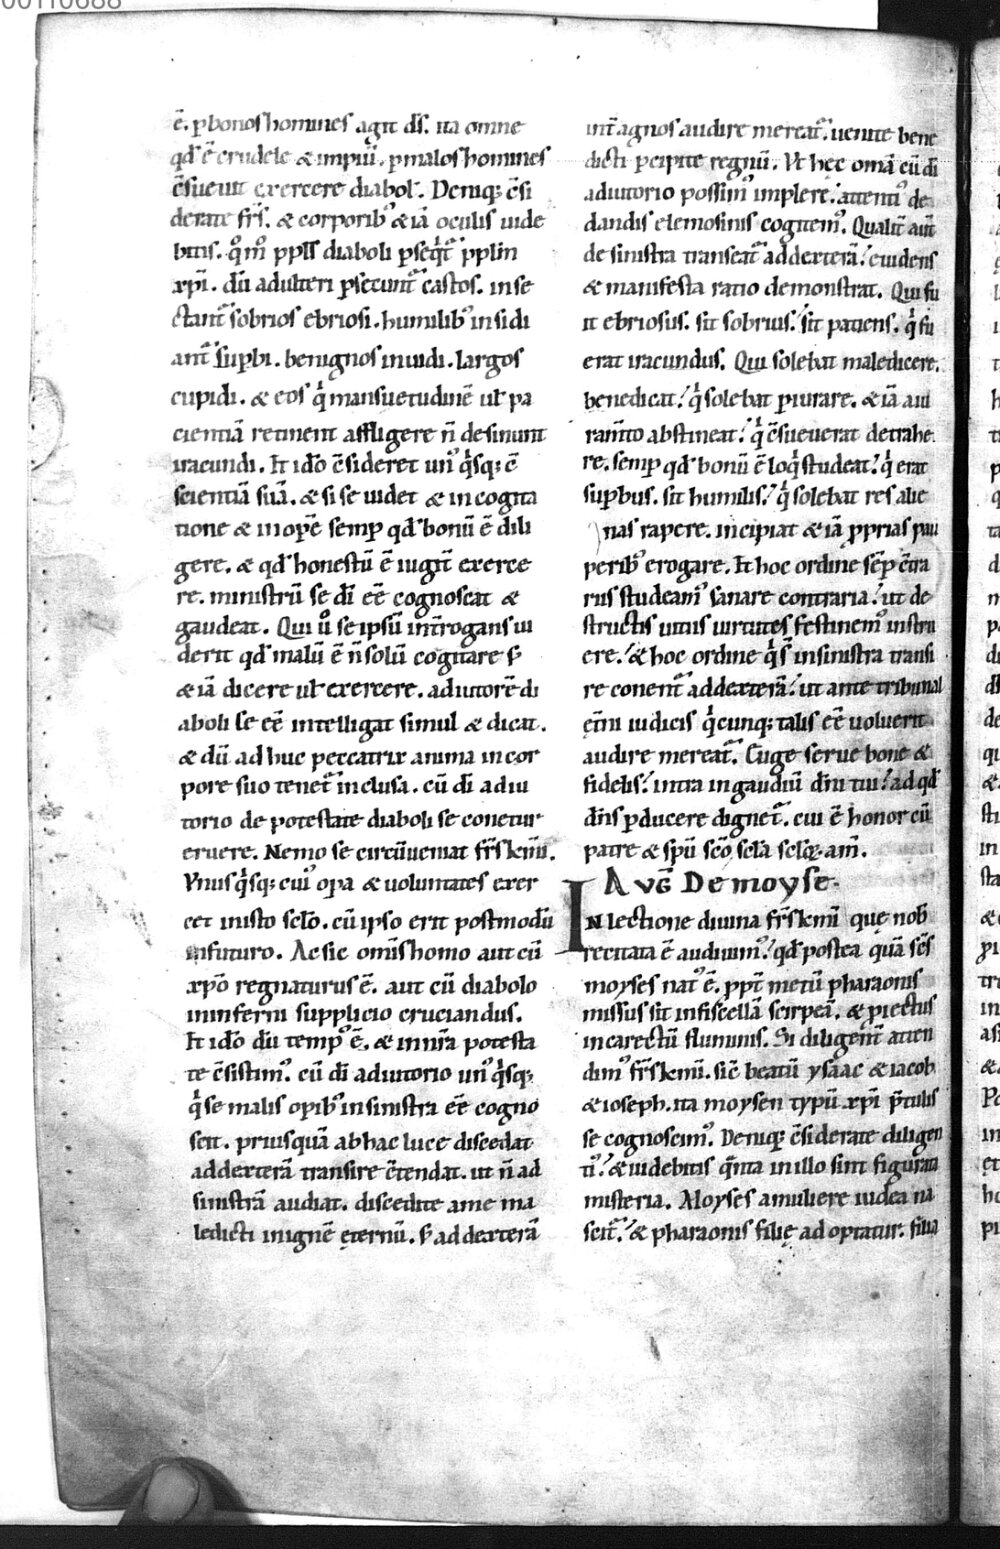 00110688
ē. p bonos homines agit d̄s. ita omne
qd̓ ē crudele & impiū. p malos homines
c̄sueuit exercere diabol᷒. Deniq; c̄si
derate fr̄s. & corporib᷒ & iā oculis uide
bitis. q̊m̊ pp̄ls diaboli p̄seq̇t̄ pp̄lm
xp̄i. dū adulteri p̄secunt̄ castos. inse
ctant̄ sobrios ebriosi. humilib᷒ insidi
ant̄ supbi. benignos inuidi. largos
cupidi. & eos q̇ mansuetudinē ul̄ pa
cientiā retinent affligere n̄ desinunt
iracundi. Et id̓o c̄sideret un᷒ q̇sq; ē
scientiā suā. & si se uidet & in cogita
tione & in opē semp qd̓ bonū ē dili
gere. & qd̓ honestū ē iugit̄ exerce
re. ministrū se dī eē cognoscat &
gaudeat. Qui ů se ipsū int̄rogans ui
derit qd̓ malū ē n̄ solū cogitare s̓
& iā dicere ul̄ exercere. adiutorē di
aboli se eē intelligat simul & dicat.
& dū adhuc peccatrix anima in cor
pore suo tenet̄ inclusa. cū dī adiu
torio de potestate diaboli se conetur
eruere. Nemo se circūueniat fr̄s km̄i.
Vnus q̇sq; cui᷒ opa & uoluntates exer
cet in isto sclo̅. cū ipso erit postmodū
in futuro. Ac sic om̄is homo aut cū
xp̄o regnaturus ē. aut cū diabolo
in inferni supplicio cruciandus.
Et id̓o dū temp᷒ ē. & in nr̄a potesta
te c̄sistim᷒. cū dī adiutorio un᷒ q̇sq;
q̇ se malis opib᷒ in sinistra eē cogno
scit. priusquā ab hac luce discedat
ad dexterā transire c̄tendat. ut n̄ ad
sinistrā audiat. discedite a me ma
ledicti in ignē ęternū. s̓ ad dexterā
int̄ agnos audire mereat̄. uenite bene
dicti pcipite regnū. Vt hec om̄a cū dī
adiutorio possim᷒ implere. attenti᷒ de
dandis elemosinis cogitem᷒. Qualit̄ aut̄
de sinistra transeat̄ ad dexterā. euidens
& manifesta ratio demonstrat. Qui fu
it ebriosus. sit sobrius. sit patiens. q̇ fu
erat iracundus. Qui solebat maledicere.
benedicat. q̇ solebat piurare. & iā a iu
ram̄to abstineat. q̇ c̄sueuerat detrahe
re. semp qd̓ bonū ē loq̇ studeat. q̇ erat
supbus. sit humilis. q̇ solebat res alie
nas rapere. incipiat & iā pprias pau
perib᷒ erogare. Et hoc ordine sēp c̄tra
riis studeam᷒ sanare contraria. ut de
structis uitiis uirtutes festinem᷒ instru
ere. & hoc ordine q̇s̓ in sinistra transi
re conent̄ ad dexterā. ut ante tribunal
ęt̄ni iudicis q̇cunq; talis eē uoluerit
audire mereat̄. Euge serue bone &
fidelis. intra in gaudiū dn̄i tui. ad qd̓
dn̄s pducere dignet̄. cui ē honor cū
patre & sp̄u sc̄o sc̄la sclo̅ꝝ. am̄.
AVG̅ De moyse.
IN lectione diuina fr̄s km̄i que nob̄
recitata ē audiuim᷒. qd̓ postea quā sc̄s
moyses nat᷒ ē. ppt̄ metū pharaonis
missus sit in fiscellā scirpeā. & piectus
in carectū fluminis. Si diligent̄ atten
dim᷒ fr̄s km̄i. sic̄ beatū ysaac & iacob
& ioseph. ita moysen typū xp̄i p̄tulis
se cognoscim᷒. Deniq; c̄siderate diligen
t̄i. & uidebitis q̄nta in illo sint figurata
misteria. Moyses a muliere iudea na
scit̄. & pharaonis filię adoptatur. filia